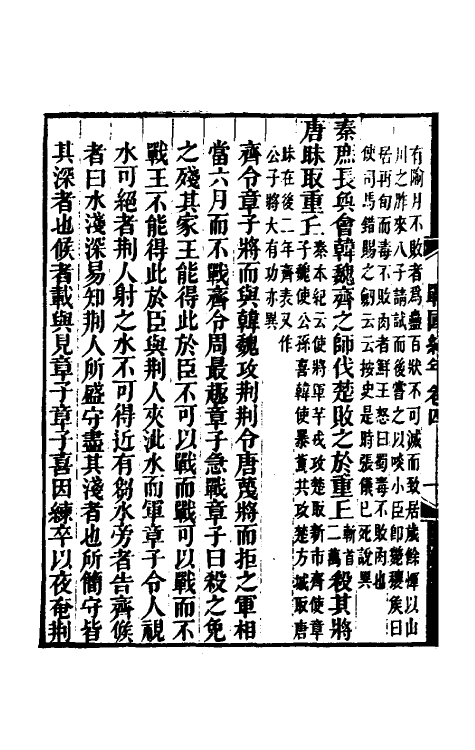 戰國紀年 卷四 一
有踰月不敗者爲蠱百狀不可滅而致居歲餘惲以山
川之胙來八子請試而後嘗之以啖小臣卽斃褒侯曰
居再旬而毒不敗肉者鮮王怒曰蜀毒不敗肉也
使司馬錯賜之劒云云按史是時張儀已死說異
秦庶長奐會韓魏齊之師伐楚敗之於重丘斬首二萬殺其將
唐昧取重丘秦本紀云使將軍芈戎攻楚取新市齊使章子魏使公孫喜韓使暴鳶共攻楚方城取唐
昧在後二年齊表又作公子將大有功亦異
齊令章子將而與韓魏攻荆荆令唐蔑將而拒之軍相
當六月而不戰齊令周最趣章子急戰章子曰殺之免
之殘其家王能得此於臣不可以戰而戰可以戰而不
戰王不能得此於臣與荆人夾沘水而軍章子令人視
水可絕者荆人射之水不可得近有芻水旁者告齊候
者曰水淺深易知荆人所盛守盡其淺者也所簡守皆
其深者也候者載與見章子章子喜因練卒以夜奄荆